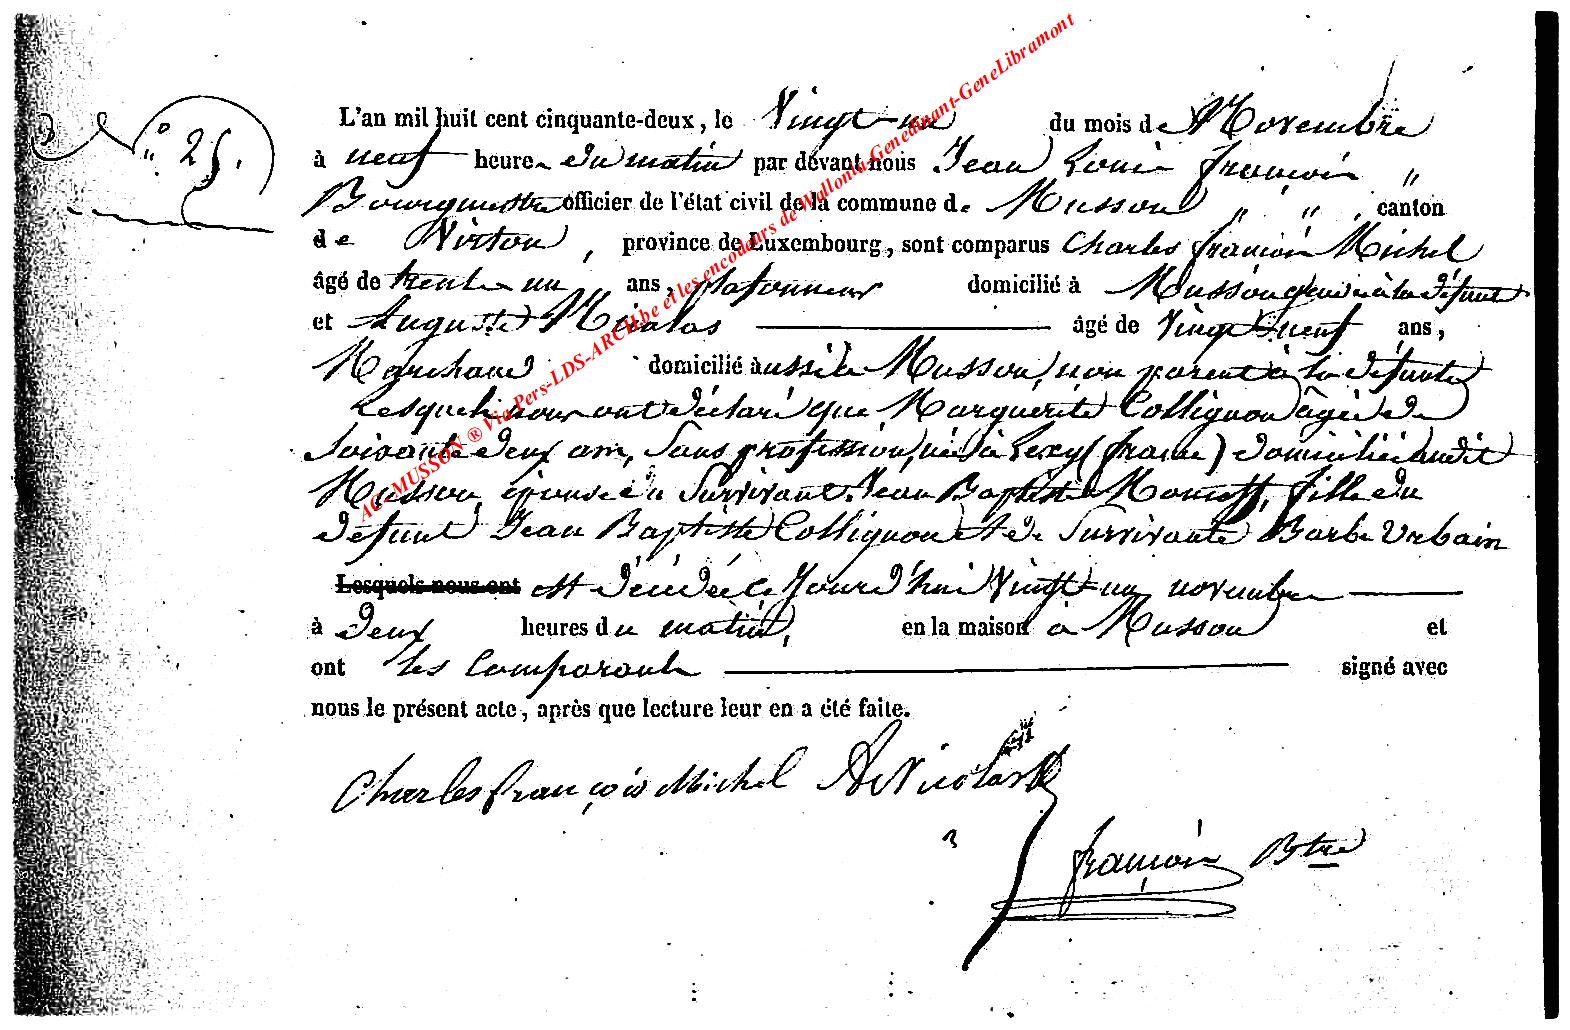 N.° 25.
L'an mil huit cent cinquante-deux, le Vingt-un du mois de Novembre
à neuf heure du matin par devant nous Jean Louis françois "
Bourgmestre officier de l'état civil de la commune de Musson " " , canton
de Virton , province de Luxembourg, sont comparus Charles françois Michel
âgé de trente un ans, plafonneur domicilié à Musson gendre à la défunte
et Auguste Nicolas âgé de Vingt neuf ans,
Marchand domicilié aussi à Musson, non parent à la défunte
Lesquels nous ont déclaré que Marguerite Collignon âgée de
Soixante deux ans, Sans profession, née à Lexy (france) domiciliée audit
Musson, épouse du Survivant Jean Baptiste fille du
défunt Jean Baptiste Collignon et de Survivante Barbe Urbain
Lesquels nous ont est décédée ce Jourd'hui Vingt-un novembre
à Deux heures du matin, en la maison à Musson et
ont les Comparants signé avec
nous le présent acte, après que lecture leur en a été faite.
Charles françois Michel A Nicolas
françois Btre
AC-MUSSON ® Via Pers-LDS-ARCH.be et les encodeurs de Wallonia-Genedinant-GeneLibramont